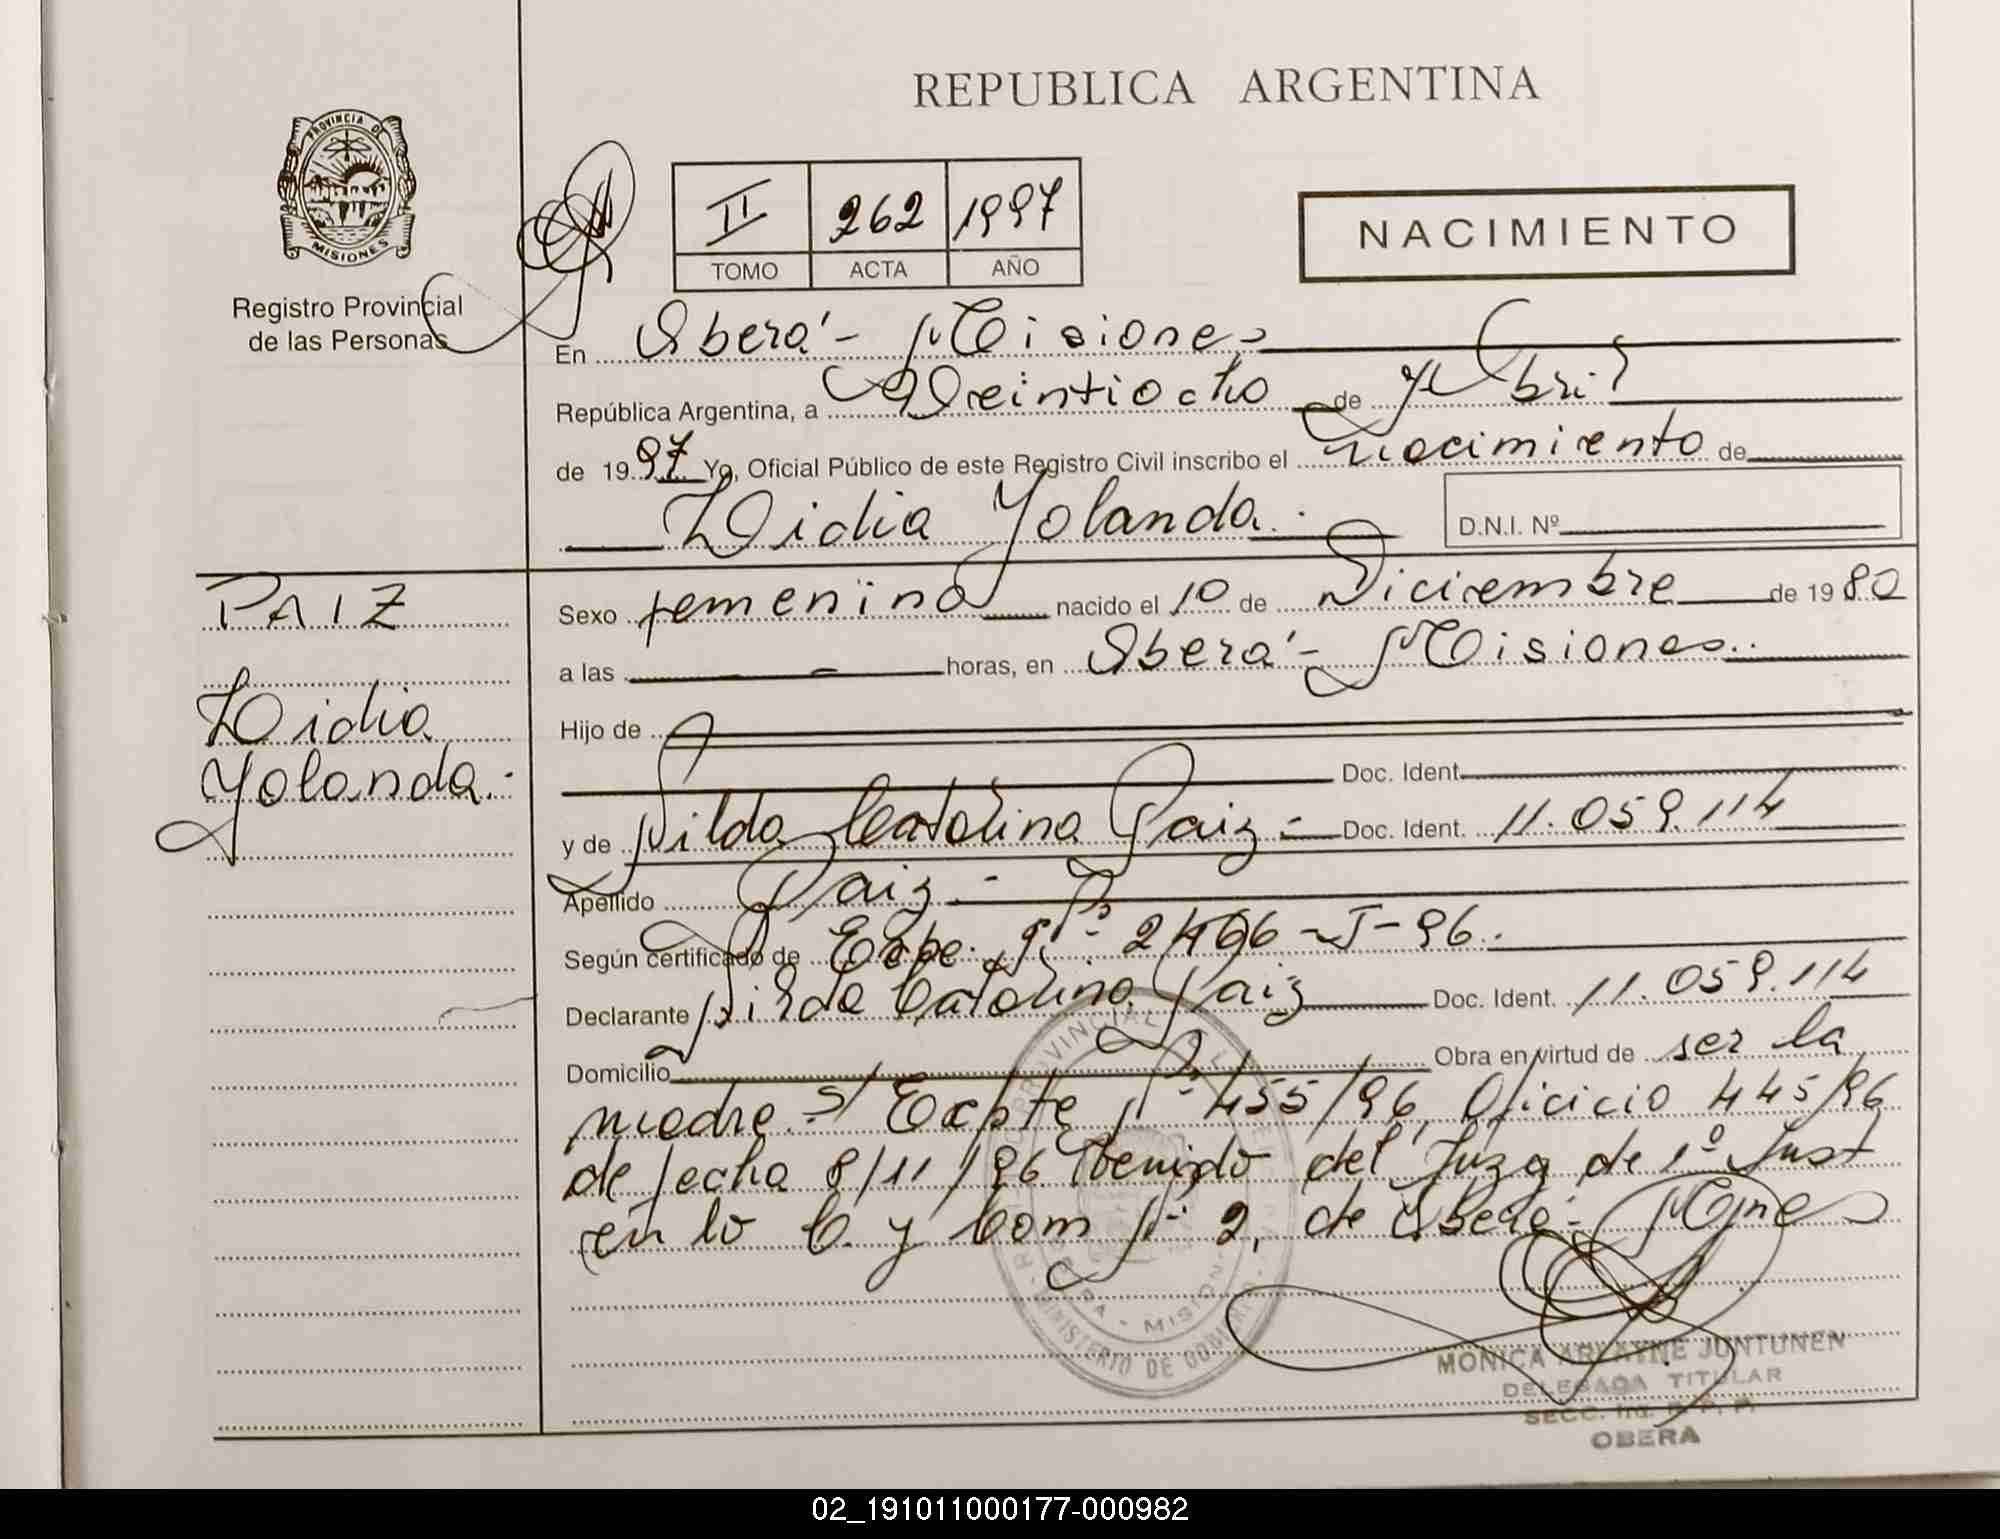 REPUBLICA ARGENTINA
PROVINCIA DE
MISIONES
Registro Provincial
de las Personas
II 262 1997
TOMO ACTA AÑO
NACIMIENTO
En Oberá - Misiones
República Argentina, a Veintiocho de Abril
de 1997 Yo, Oficial Público de este Registro Civil inscribo el nacimiento de
Lidia Yolanda.
D.N.I. Nº
PAIZ
Lidia
Yolanda.
Sexo femenino nacido el 10 de Diciembre de 1980
a las - horas, en Oberá - Misiones.
Hijo de
Doc. Ident.
y de Nilda Catalina Paiz - Doc. Ident. 11.059.114
Apellido Paiz -
Según certificado de Expe. Nº 2466-J-96.
Declarante Nilda Catalina Paiz Doc. Ident. 11.059.114
Domicilio Obra en virtud de ser la
madre s/ Expte Nº 455/96, Oficicio 445/96
de fecha 8/11/96 Venido del Juzg de 1º Inst
en lo C. y Com Nº 2, de Oberá - Mnes
MINISTERIO DE GOBIERNO
MONICA ARLAYNE JUNTUNEN
DELEGADA TITULAR
OBERA
02_191011000177-000982